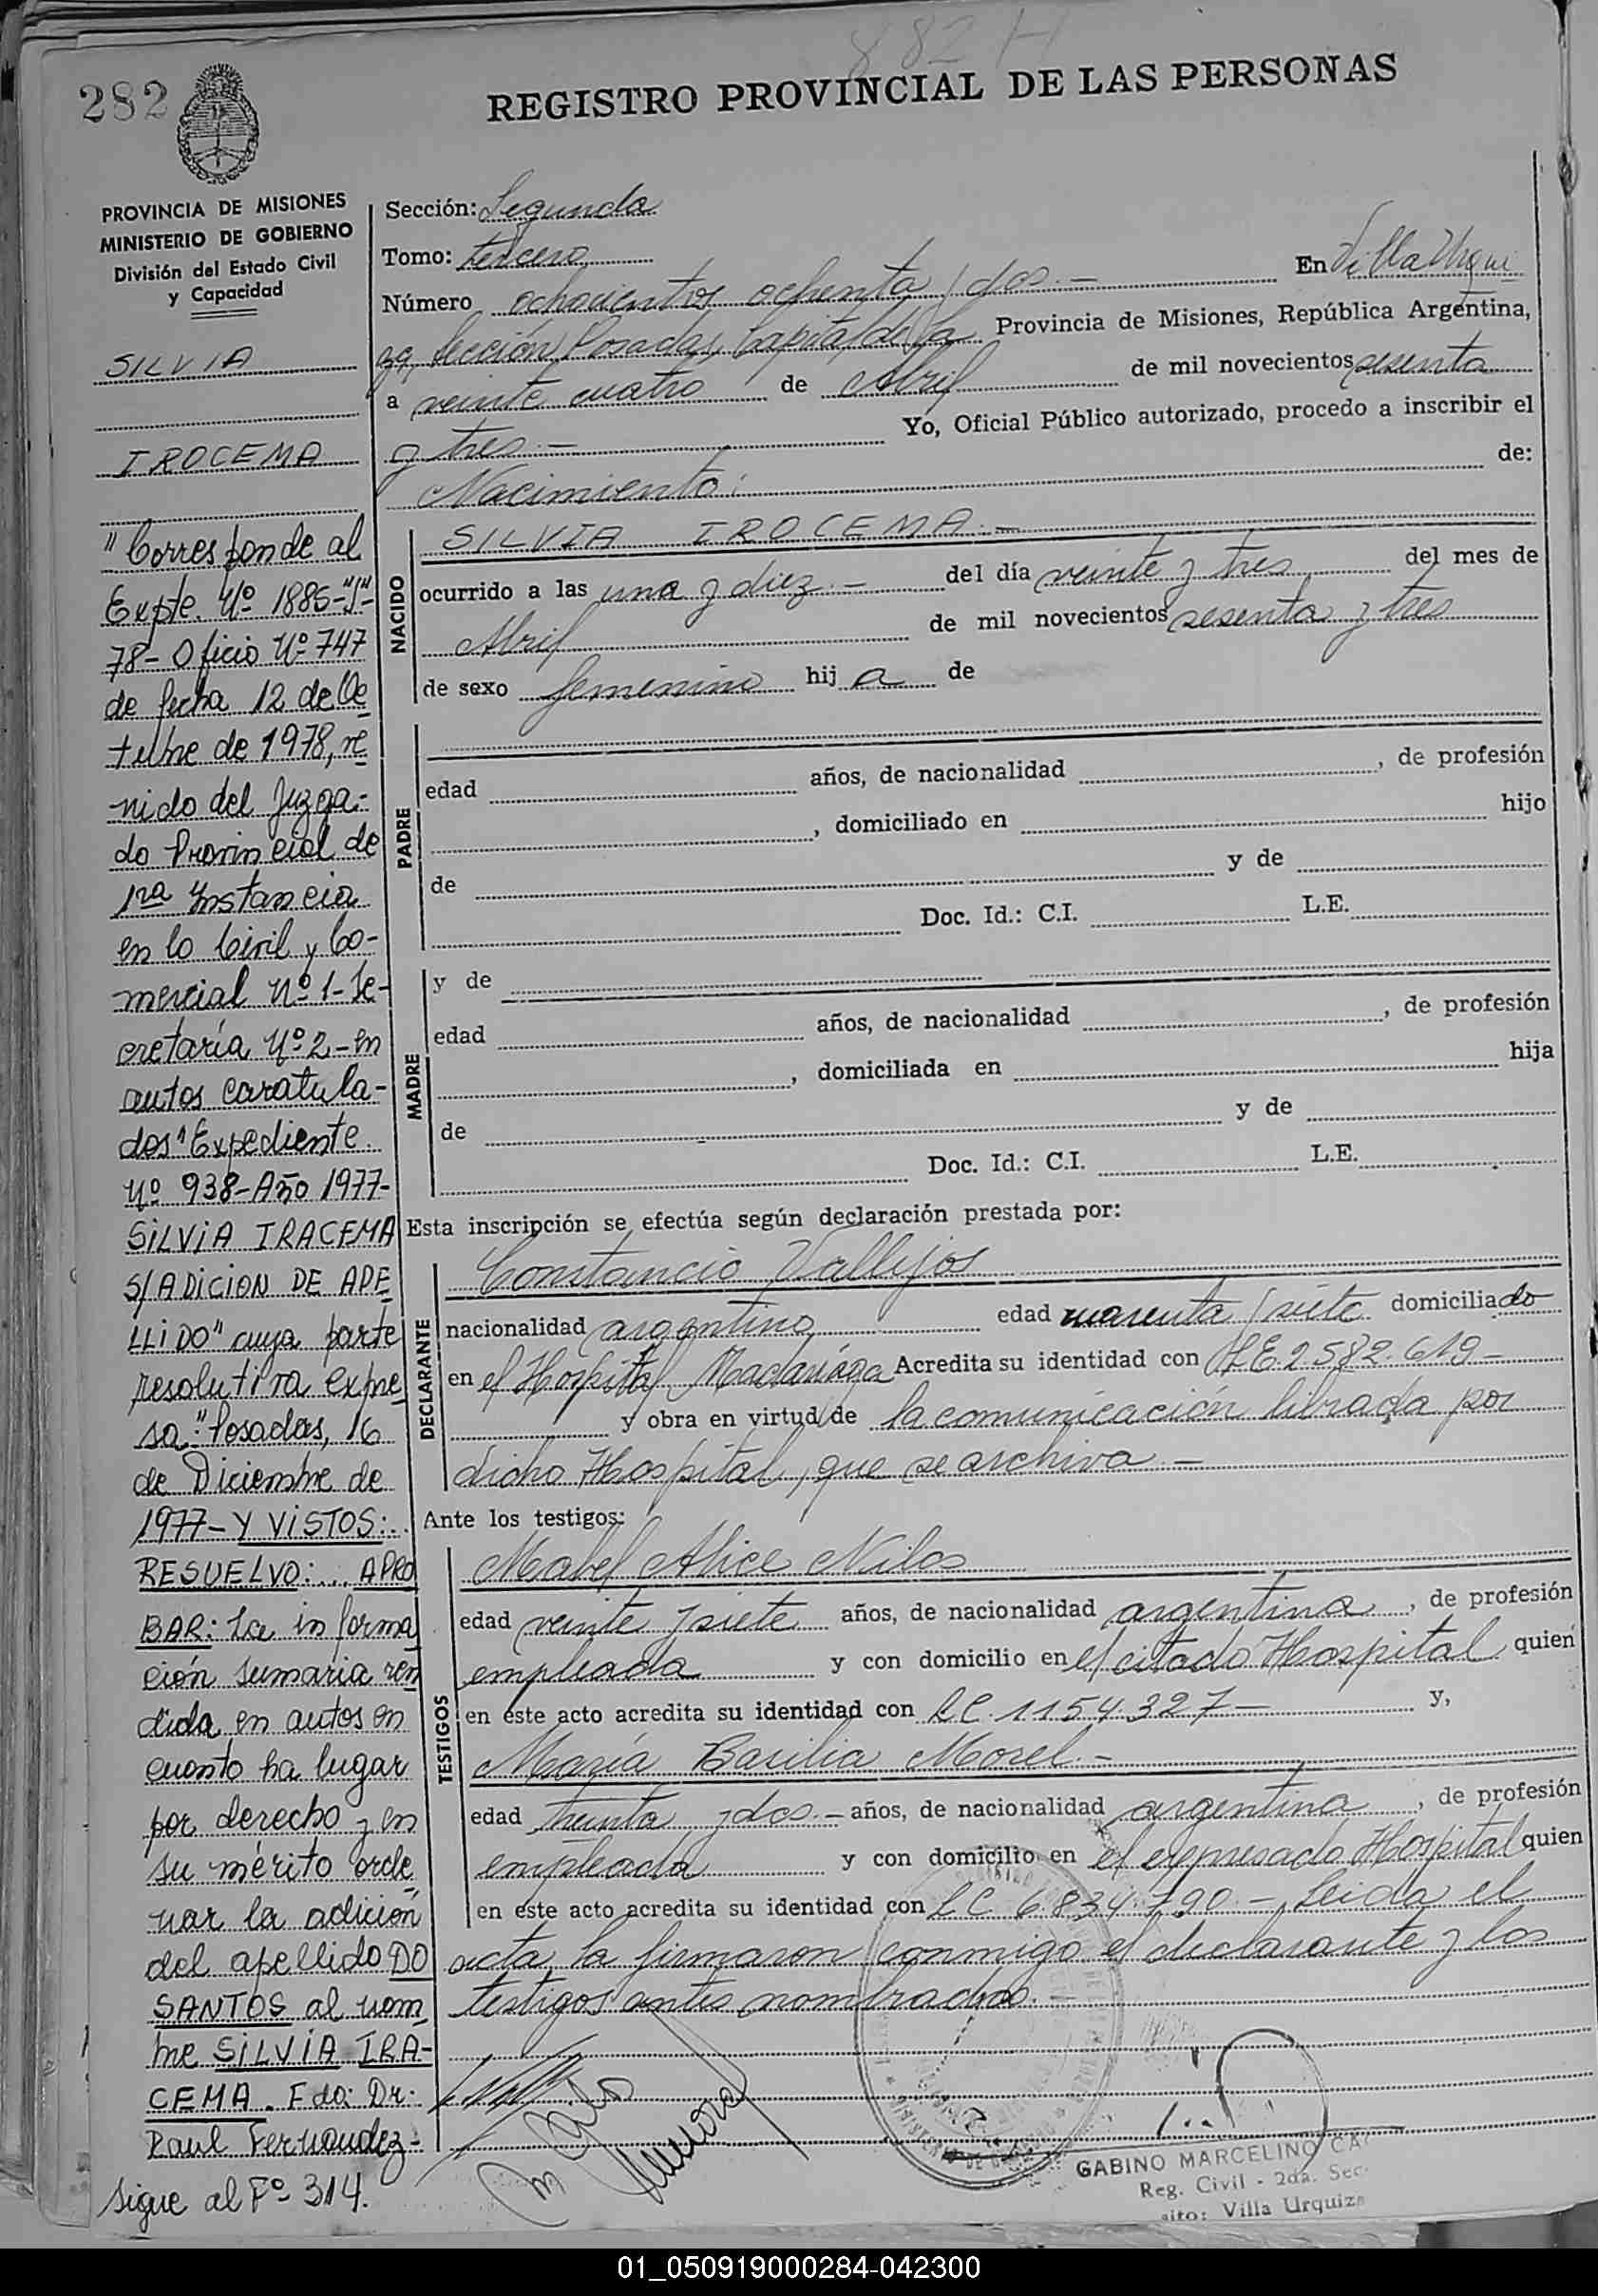 882 H
282
REGISTRO PROVINCIAL DE LAS PERSONAS
PROVINCIA DE MISIONES
MINISTERIO DE GOBIERNO
División del Estado Civil
y Capacidad
SILVIA
IROCEMA
"Corresponde al
Expte. Nº 1885-"S"-
78- Oficio Nº 747
de fecha 12 de Oc
tubre de 1978, ve
nido del Juzga-
do Provincial de
1ra Instancia
en lo Civil y Co-
mercial Nº 1-Se-
cretaría Nº 2-en
autos caratula-
dos "Expediente
Nº 938-Año 1977-
SILVIA IRACEMA
S/ADICION DE APE
LLIDO" cuya parte
resolutiva expre
sa: "Posadas, 16
de Diciembre de
1977- Y VISTOS:..
RESUELVO:... APRO
BAR: La informa
ción sumaria ren
dida en autos en
cuanto ha lugar
por derecho y en
su mérito orde
nar la adición
del apellido DO
SANTOS al nom
bre SILVIA IRA-
CEMA. Fdo: Dr:
Raul Fernandez-
Sigue al Fº 314.
Sección: Segunda
Tomo: tercero
Número ochocientos ochenta y dos.- En Villa Urqui
za, Sección Posadas, Capital de la Provincia de Misiones, República Argentina,
a veinte cuatro de Abril de mil novecientos sesenta
y tres.- Yo, Oficial Público autorizado, procedo a inscribir el
Nacimiento: de:
NACIDO
SILVIA IROCEMA.-
ocurrido a las una y diez.- del día veinte y tres del mes de
Abril de mil novecientos sesenta y tres
de sexo femenino hij a de
PADRE
edad años, de nacionalidad , de profesión
, domiciliado en hijo
de y de
Doc. Id.: C.I. L.E.
MADRE
y de
edad años, de nacionalidad , de profesión
, domiciliada en hija
de y de
Doc. Id.: C.I. L.E.
Esta inscripción se efectúa según declaración prestada por:
DECLARANTE
Constancio Vallejos
nacionalidad argentino edad cuarenta y siete domiciliado
en el Hospital Madariaga Acredita su identidad con LE.2582.619-
y obra en virtud de la comunicación librada por
dicho Hospital, que se archiva.-
Ante los testigos:
TESTIGOS
Mabel Alice Nilos
edad veinte y siete años, de nacionalidad argentina, de profesión
empleada y con domicilio en el citado Hospital quien
en este acto acredita su identidad con LC.1154.327- y,
María Basilia Morel.-
edad treinta y dos.- años, de nacionalidad argentina, de profesión
empleada y con domicilio en el expresado Hospital quien
en este acto acredita su identidad con LC 6.834.790.- Leida el
acta, la firmaron conmigo el declarante y los
testigos antes nombrados.-
GABINO MARCELINO
Reg. Civil - 2da. Sec.
Villa Urquiza
01_050919000284-042300